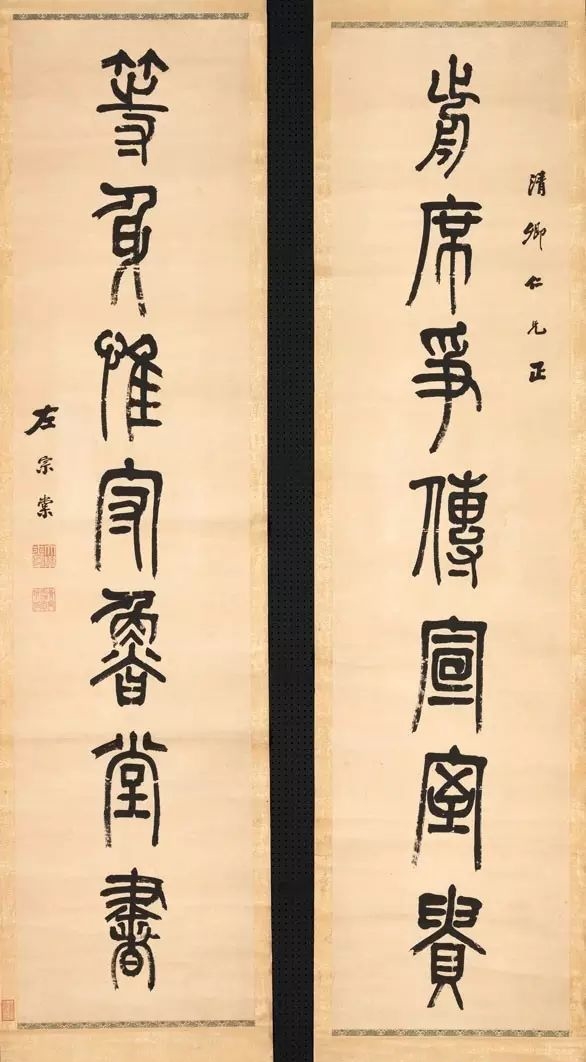 清卿仁兄正
前席爭傳宣室貴
等身惟守魯堂書
左宗棠